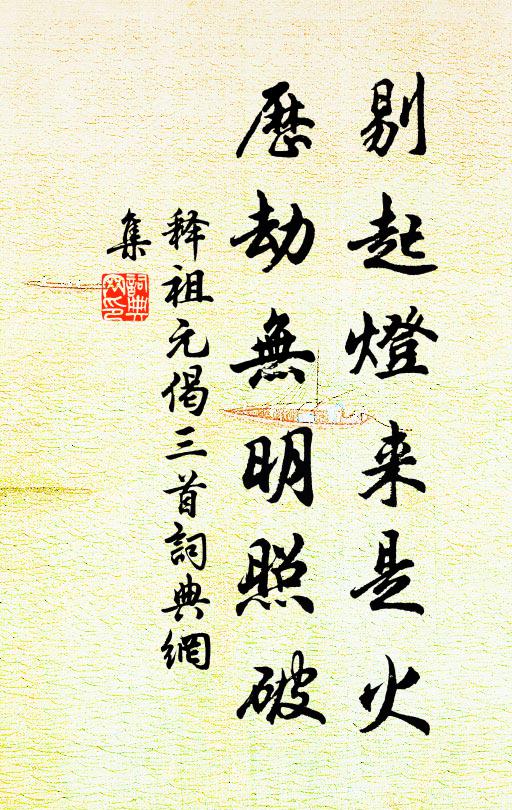 剔起燈来是火
歷劫無明照破
释祖元偈三首詞典網
集
詞典
网印